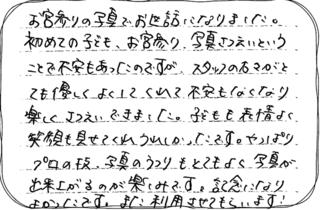 お宮参りの写真でお世話になりました。
初めての子ども、お宮参り、写真さつえいという
ことで不安もあったのですが、スタッフの方々がと
ても優しくよくしてくれて不安もなくなり
楽しくさつえいできました。子どもも表情よく
笑顔も見せてくれうれしかったです。やっぱり
プロの技、写真のうつりもとてもよく、写真が
出来上がるのが楽しみです。記念になり
よかったです。また利用させてもらいます!